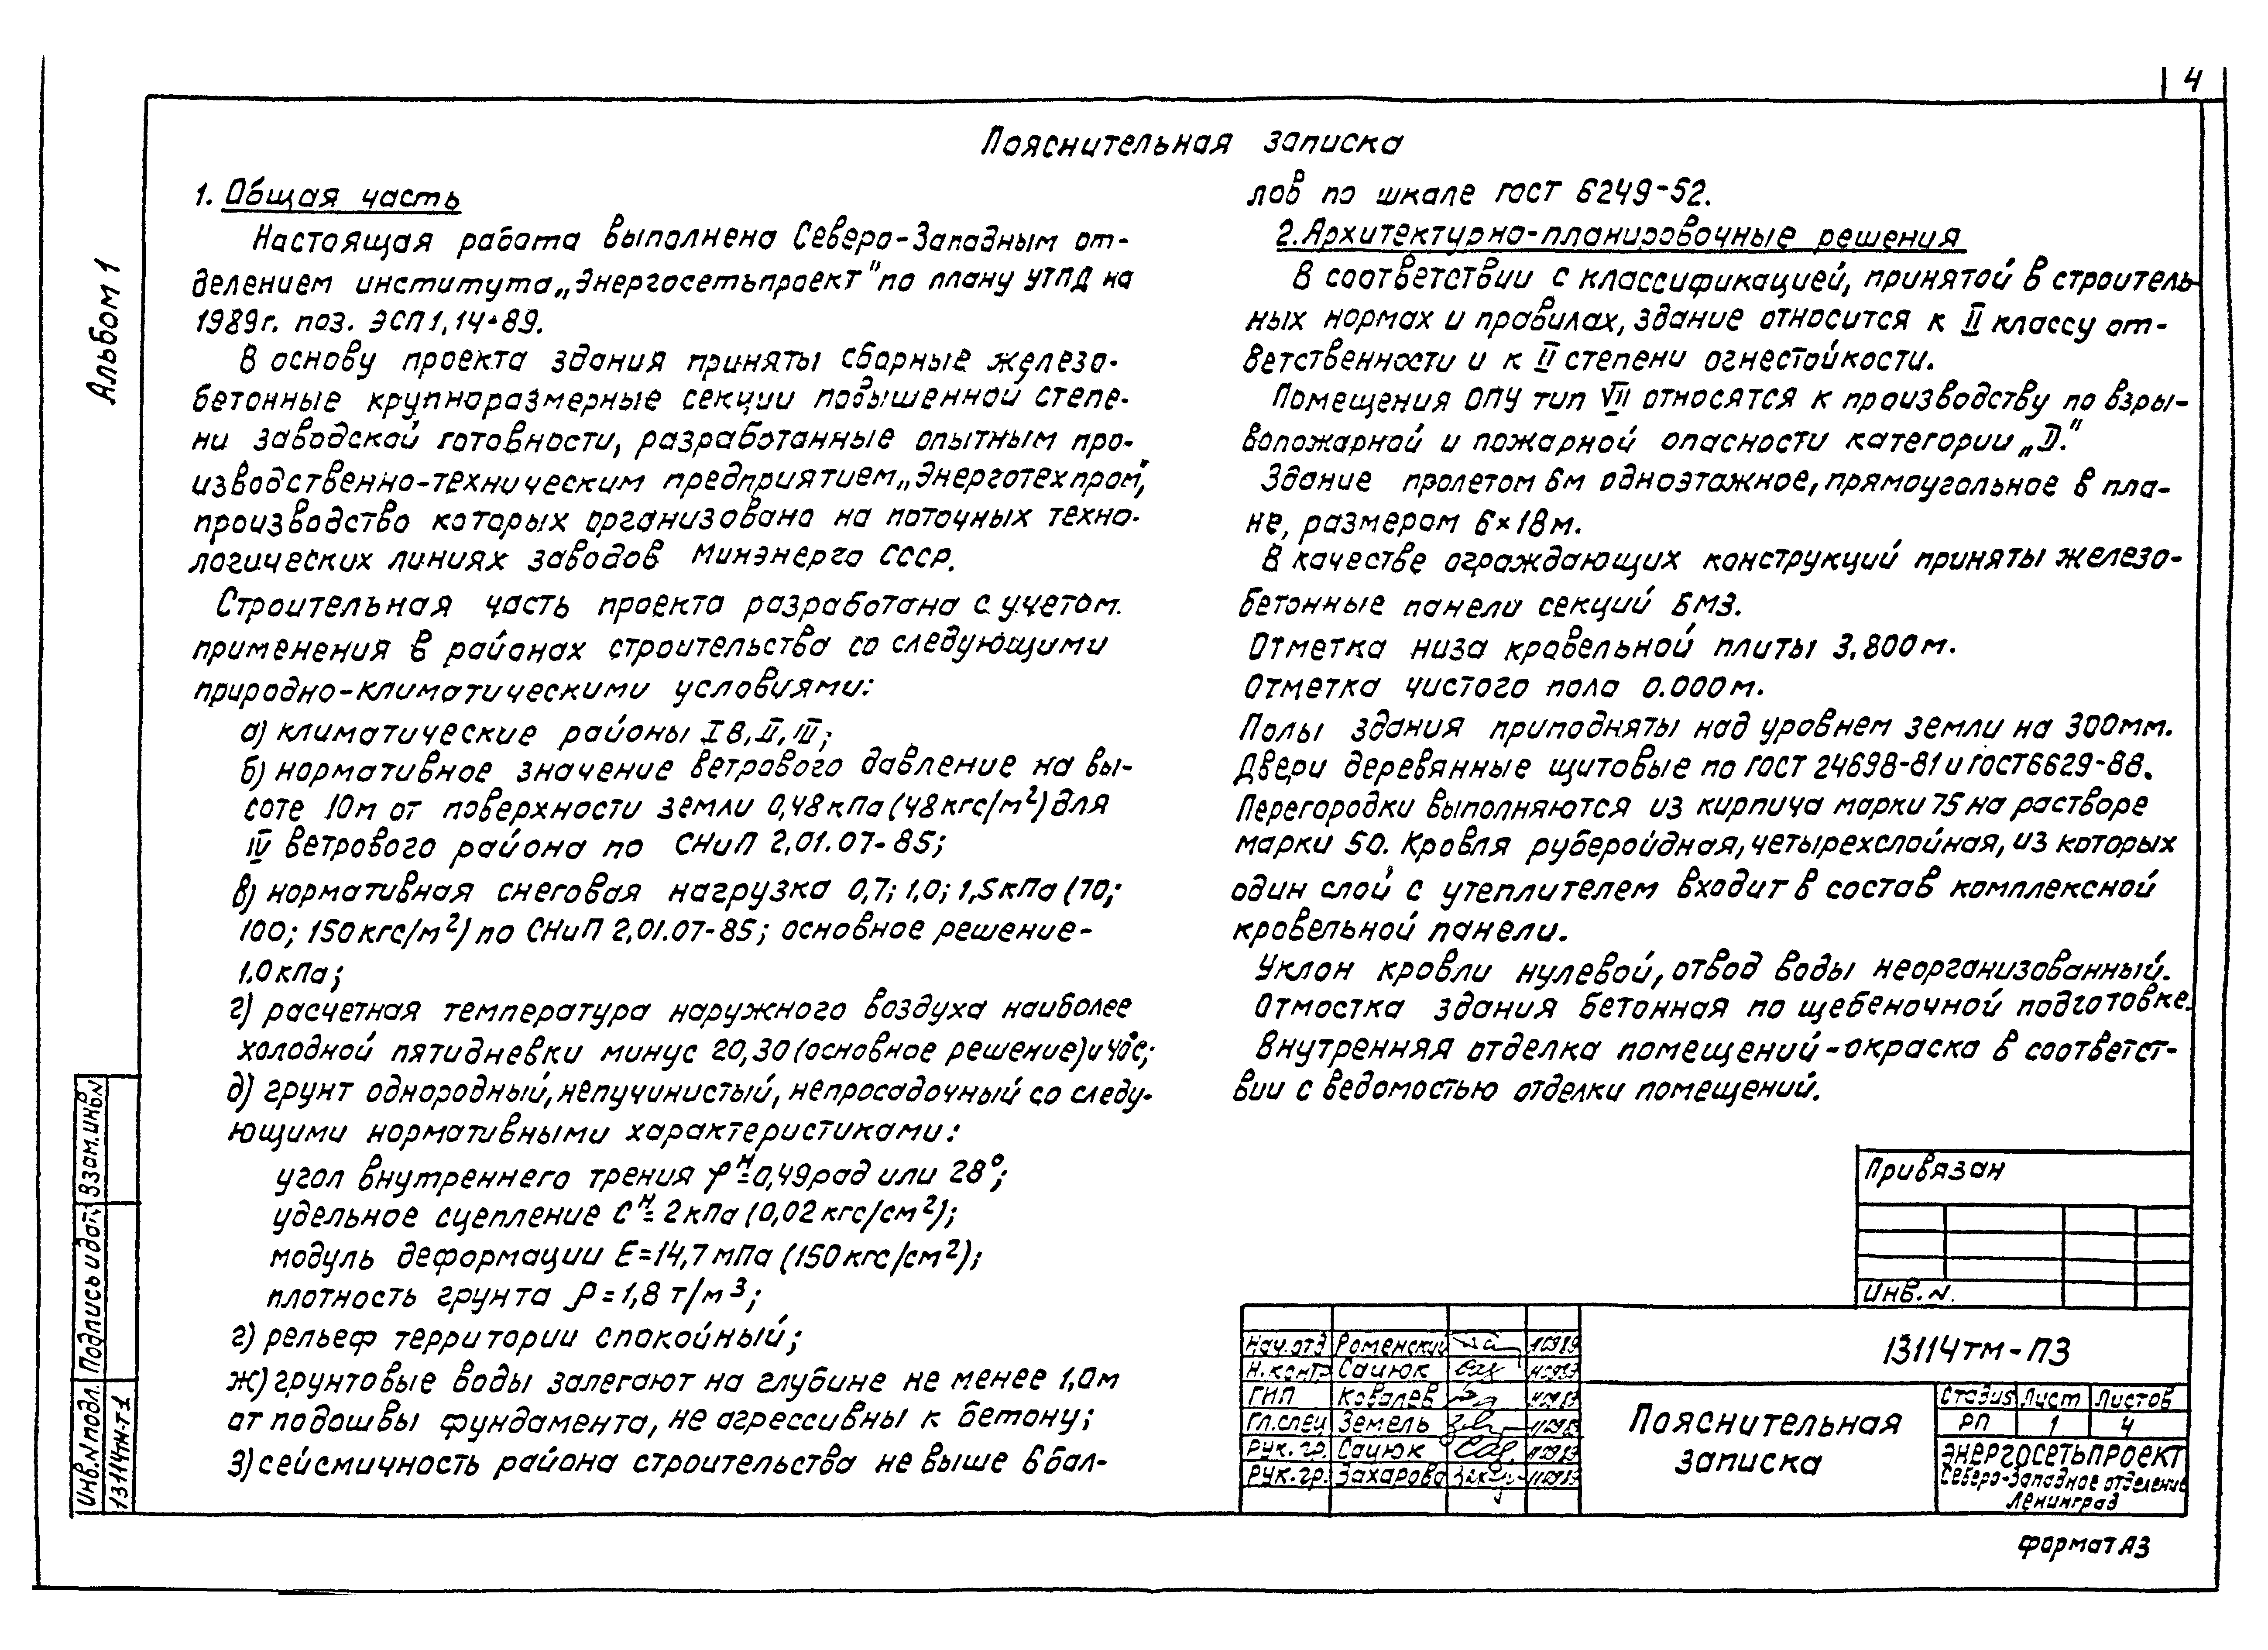 4
Альбом 1
Пояснительная записка
1. Общая часть
Настоящая работа выполнена Северо-Западным от-
делением института „Энергосетьпроект" по плану УТПД на
1989г. поз. ЭСП1,14-89.
В основу проекта здания приняты сборные железо-
бетонные крупноразмерные секции повышенной степе-
ни заводской готовности, разработанные опытным про-
изводственно-техническим предприятием „Энерготехпром",
производство которых организовано на поточных техно-
логических линиях заводов Минэнерго СССР.
Строительная часть проекта разработана с учетом
применения в районах строительства со следующими
природно-климатическими условиями:
а) климатические районы IВ, II, III;
б) нормативное значение ветрового давление на вы-
соте 10м от поверхности земли 0,48кПа (48кгс/м²) для
IV ветрового района по СНиП 2.01.07-85;
в) нормативная снеговая нагрузка 0,7; 1,0; 1,5кПа (70;
100; 150кгс/м²) по СНиП 2.01.07-85; основное решение-
1.0кПа;
г) расчетная температура наружного воздуха наиболее
холодной пятидневки минус 20,30 (основное решение) и 40°С;
д) грунт однородный, непучинистый, непросадочный со следу-
ющими нормативными характеристиками:
угол внутреннего трения φᴴ=0,49рад или 28°;
удельное сцепление Сᴴ=2кПа (0,02кгс/см²);
модуль деформации Е=14,7мПа (150кгс/см²);
плотность грунта ρ=1,8 т/м³;
г) рельеф территории спокойный;
ж) грунтовые воды залегают на глубине не менее 1,0м
от подошвы фундамента, не агрессивны к бетону;
з) сейсмичность района строительства не выше 6 бал-
лов по шкале ГОСТ 6249-52.
2. Архитектурно-планировочные решения
В соответствии с классификацией, принятой в строитель-
ных нормах и правилах, здание относится к II классу от-
ветственности и к II степени огнестойкости.
Помещения ОПУ тип VII относятся к производству по взры-
вопожарной и пожарной опасности категории „Д."
Здание пролетом 6м одноэтажное, прямоугольное в пла-
не, размером 6×18м.
В качестве ограждающих конструкций приняты железо-
бетонные панели секций БМЗ.
Отметка низа кровельной плиты 3.800м.
Отметка чистого пола 0.000м.
Полы здания приподняты над уровнем земли на 300мм.
Двери деревянные щитовые по ГОСТ 24698-81 и ГОСТ 6629-88.
Перегородки выполняются из кирпича марки 75 на растворе
марки 50. Кровля рубероидная, четырехслойная, из которых
один слой с утеплителем входит в состав комплексной
кровельной панели.
Уклон кровли нулевой, отвод воды неорганизованный.
Отмостка здания бетонная по щебеночной подготовке.
Внутренняя отделка помещений-окраска в соответст-
вии с ведомостью отделки помещений.
Привязан
Инв. N.
Нач.отд Роменский 110989
Н.контр Сацюк 110989
ГИП Ковалев 110989
Гл.спец Земель 110989
Рук.гр. Сацюк 110989
Рук.гр. Захарова 110989
13114тм-ПЗ
Пояснительная
записка
Стадия Лист Листов
РП 1 4
Энергосетьпроект
Северо-Западное отделение
Ленинград
Формат А3
Взам.инв.N
Подпись и дата
Инв.N подл.
13114тм-т1